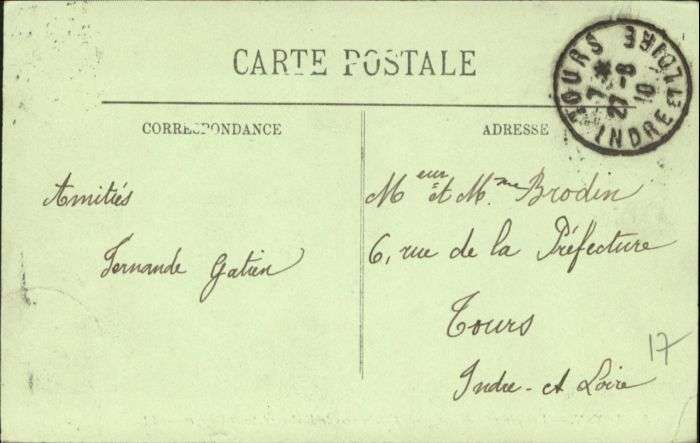 CARTE POSTALE
CORRESPONDANCE
ADRESSE
TOURS GARE
7 *
27-8
10
INDRE-ET-LOIRE
Amitiés
Fernande Gatien
Meur et Mme Brodin
6, rue de la Préfecture
Tours
Indre-et Loire
17